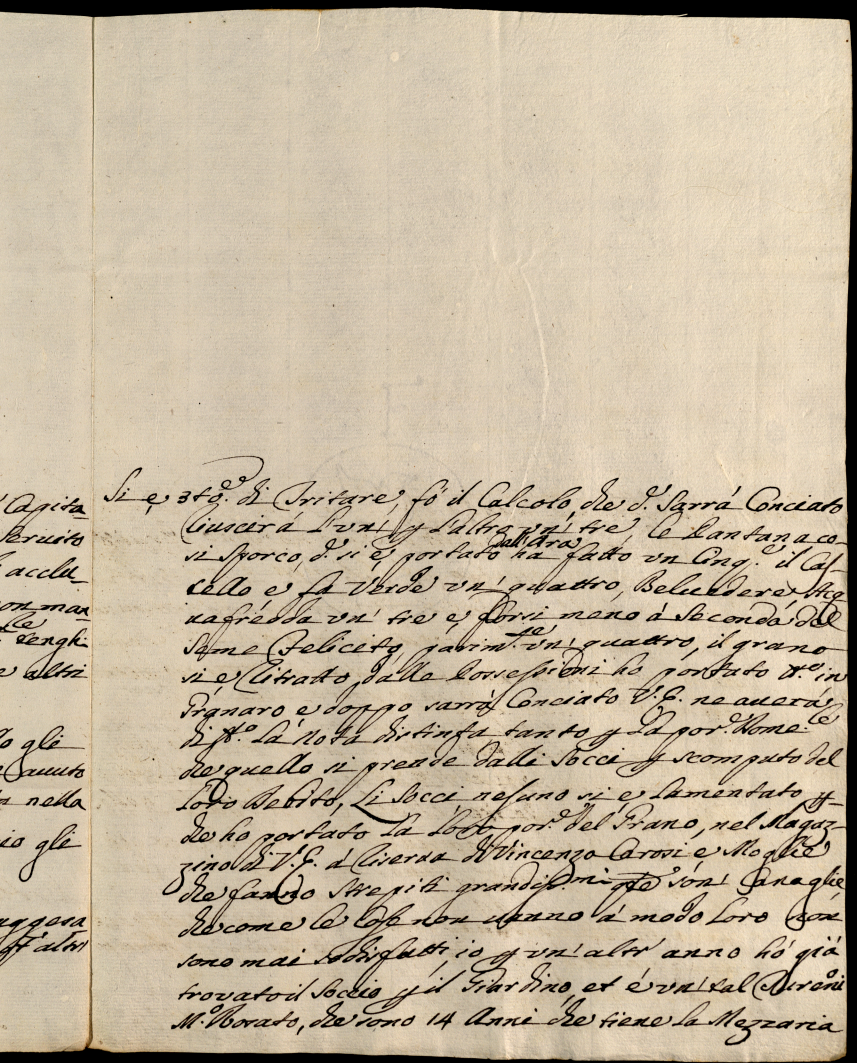 Capita-
Servito
acclu-
man-
tenghi
e altri
gli
avuto
nella
gli
altri
Si e 3to. di Tritare, fò il Calcolo, che d. Sarrà Conciato
riuscirà l'uni y l'altro un' tre, le Pantana co-
si sporco, d. si è portato dall'Ara ha fatto un Cinq.e il Cas-
tello e la Verde un' quattro, Belvedere Acq-
uafredda un' tre e forsi meno à seconda del
seme Felicito, parim.te un' quattro, il grano
si e ritratto, dalle Possessioni ho portato t.o in
Granaro e doppo sarrà Conciato V.E. ne averà
di t.o La Nota distinta tanto y La por. Nome.le
che quello si prende dalli Socci y scomputo del
Loro Debito, Li Socci nesuno si e lamentato y-
che ho portato La Loro por. del Grano, nel Magaz-
zino di V.E. à riserva di Vincenzo Carosi e Moglie
che fanno strepiti grandiss.mi son' Canaglie
che come le Cose non vanno à modo Loro non
sono mai sodisfatti io y un' altr' anno hó già
trovato il Soccio y il Giardino et é un' tal
M.o Norato, che sono 14 Anni che tiene la Mezzaria